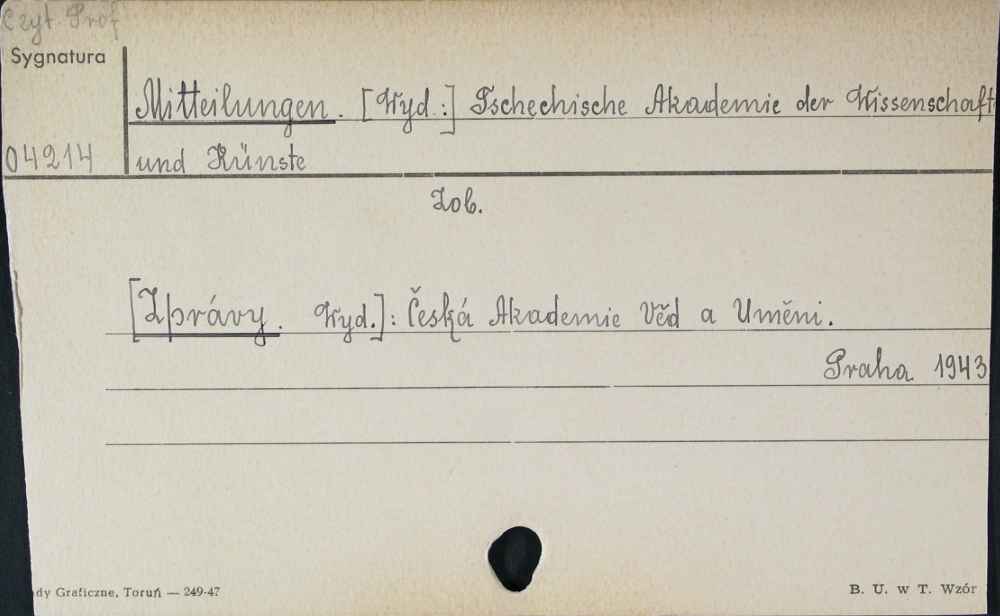 Czyt. Prof
Sygnatura
Mitteilungen. [Wyd.:] Tschechische Akademie der Wissenschaft
04214
und Künste
Zob.
[Zprávy. Wyd.]: Česká Akademie Věd a Uměni.
Praha 1943
dy Graficzne, Toruń — 249-47
B. U. w T. Wzór